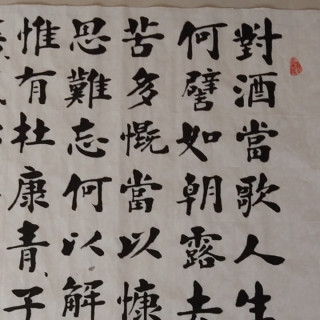 對酒當歌人生
何譬如朝露去
苦多慨當以慷
思難忘何以解
惟有杜康青、子